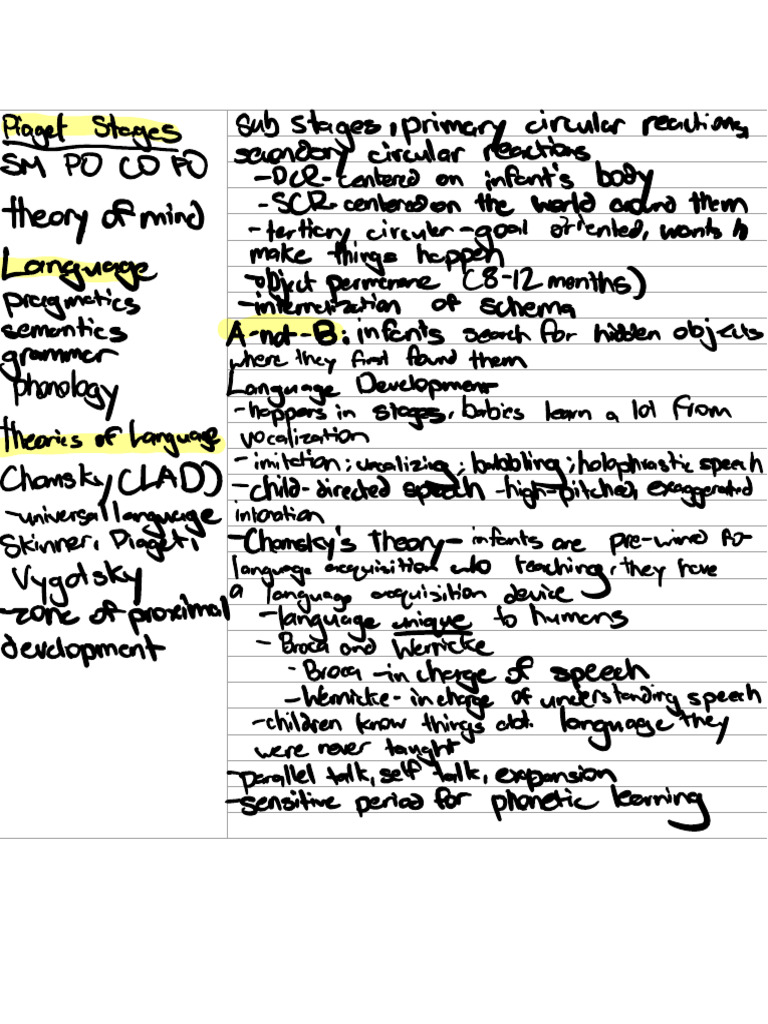 Piaget Stages
SM PO CO FO
theory of mind
Language
pragmatics
semantics
grammar
phonology
theories of Language
Chomsky (LAD)
-universal language
Skinner, Piaget,
Vygotsky
-zone of proximal
development
Sub stages, primary circular reactions,
secondary circular reactions
-PCR-centered on infant's body
-SCR-centered on the world around them
-tertiary circular-goal oriented, wants to
make things happen
-object permanence (8-12 months)
-internalization of schema
A-not-B: infants search for hidden objects
where they first found them
Language Development
-happens in stages, babies learn a lot from
vocalization
-imitation; vocalizing; babbling; holophrastic speech
-child-directed speech -high-pitched, exaggerated
intonation
-Chomsky's Theory- infants are pre-wired for
language acquisition w/o teaching, they have
a language acquisition device
-language unique to humans
-Broca and Wernicke
-Broca -in charge of speech
-Wernicke- in charge of understanding speech
-children know things abt. language they
were never taught
-parallel talk, self talk, expansion
-sensitive period for phonetic learning